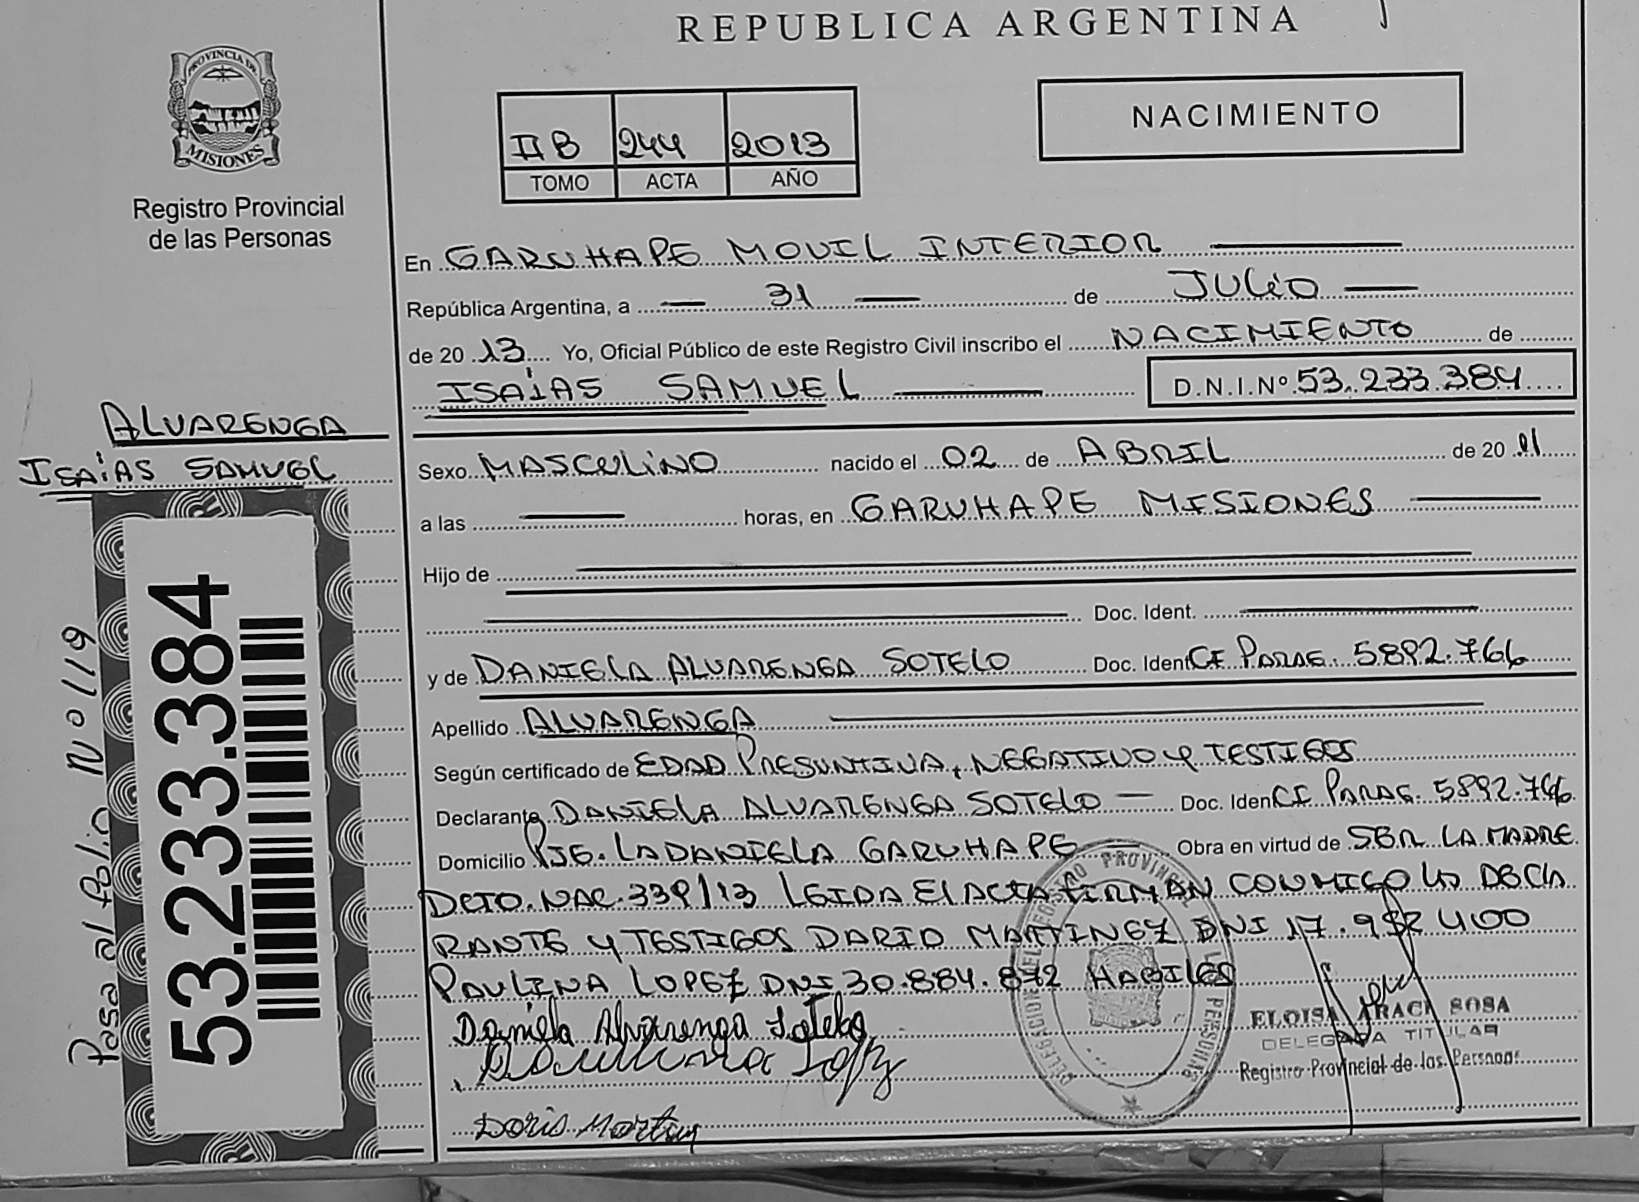 REPUBLICA ARGENTINA
PROVINCIA DE
MISIONES
Registro Provincial
de las Personas
II B 244 2013
TOMO ACTA AÑO
NACIMIENTO
En GARUHAPE MOVIL INTERIOR
República Argentina, a 31 de JULIO
de 20 13 Yo, Oficial Público de este Registro Civil inscribo el NACIMIENTO de
ISAIAS SAMUEL D.N.I.Nº 53.233.384
ALVARENGA
ISAIAS SAMUEL
Sexo MASCULINO nacido el 02 de ABRIL de 20 11
a las horas, en GARUHAPE MISIONES
Hijo de
Doc. Ident.
y de DANIELA ALVARENGA SOTELO Doc. Ident CI PARAG. 5892.766
Apellido ALVARENGA
Según certificado de EDAD PRESUNTIVA, NEGATIVO Y TESTIGOS
Declarante DANIELA ALVARENGA SOTELO Doc. Iden CI PARAG. 5892.766
Domicilio PJE. LA DANIELA GARUHAPE Obra en virtud de SER LA MADRE
DCTO. NAC. 339/13 LEIDA EL ACTA FIRMAN CONMIGO LA DECLA
RANTE Y TESTIGOS DARIO MARTINEZ DNI 17.952 400
PAULINA LOPEZ DNI 30.884.872 HABILES
Daniela Alvarenga Sotelo
ELOISA ARACI SOSA
DELEGADA TITULAR
Registro Provincial de las Personas
53.233.384
Pasa al folio Nº 119